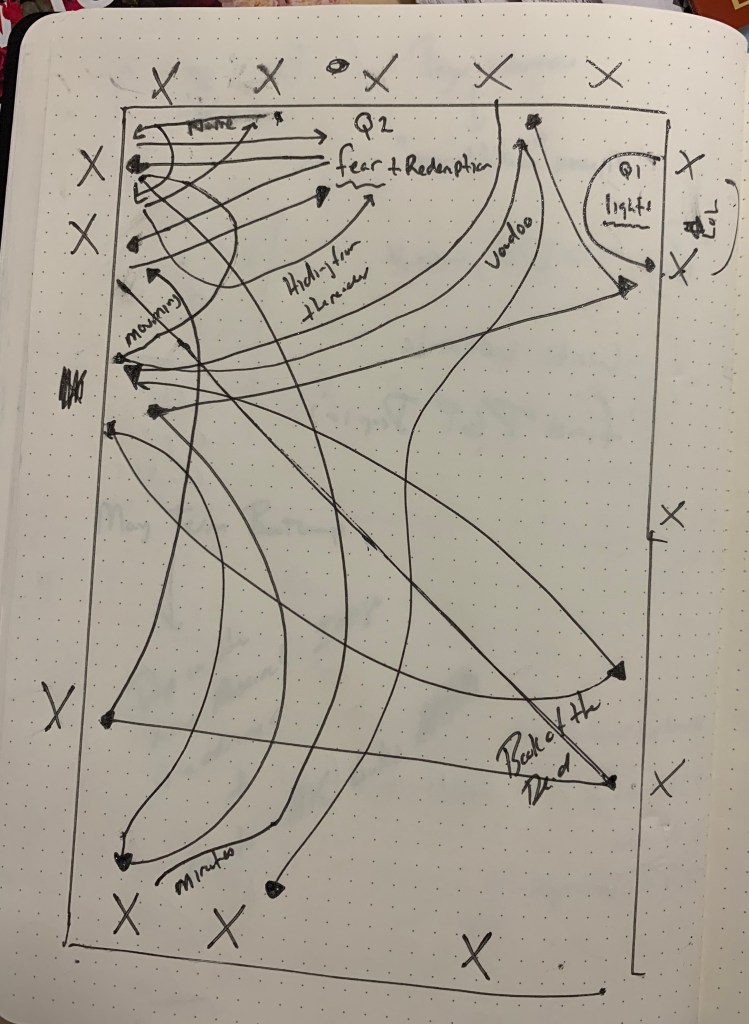 X X X X X
None
Q2
fear + Redemption
X
X
Q1
lights
X
LOL
X
Voodoo
Hiding from
the reader
mourning
X
X
Book of the
Dead
X
minutes
X X
X